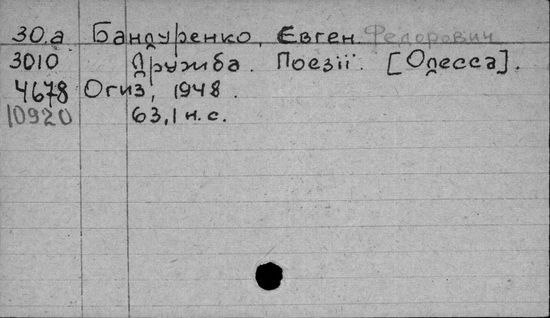 30.а Бандуренко, Євген Федорович
3010 Дружба. Поезії. [Одесса].
4678 Огиз, 1948.
10920 63,1 н. с.